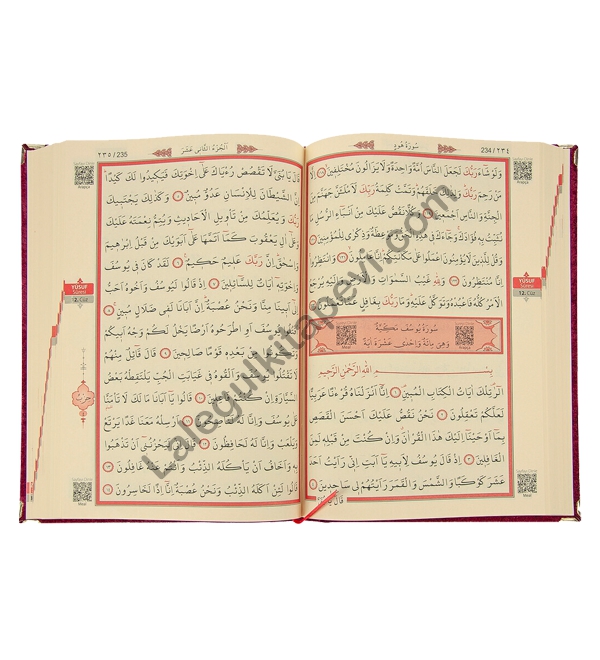 234 / ٢٣٤
سُورَةُ هُودٍ
وَلَوْ شَاءَ رَبُّكَ لَجَعَلَ النَّاسَ اُمَّةً وَاحِدَةً وَلَا يَزَالُونَ مُخْتَلِفِينَ
اِلَّا مَنْ رَحِمَ رَبُّكَ وَلِذٰلِكَ خَلَقَهُمْ وَتَمَّتْ كَلِمَةُ رَبِّكَ لَاَمْلَـَٔنَّ جَهَنَّمَ مِنَ
الْجِنَّةِ وَالنَّاسِ اَجْمَعِينَ وَكُلًّا نَقُصُّ عَلَيْكَ مِنْ اَنْبَاءِ الرُّسُلِ مَا
نُثَبِّتُ بِهِ فُؤَادَكَ وَجَاءَكَ فِي هٰذِهِ الْحَقُّ وَمَوْعِظَةٌ وَذِكْرٰى لِلْمُؤْمِنِينَ
وَقُلْ لِلَّذِينَ لَا يُؤْمِنُونَ اعْمَلُوا عَلٰى مَكَانَتِكُمْ اِنَّا عَامِلُونَ وَانْتَظِرُوا
اِنَّا مُنْتَظِرُونَ وَلِلّٰهِ غَيْبُ السَّمٰوَاتِ وَالْاَرْضِ وَاِلَيْهِ يُرْجَعُ
الْاَمْرُ كُلُّهُ فَاعْبُدْهُ وَتَوَكَّلْ عَلَيْهِ وَمَا رَبُّكَ بِغَافِلٍ عَمَّا تَعْمَلُونَ
سُورَةُ يُوسُفَ مَكِّيَّةٌ
وَهِيَ مِائَةٌ وَاِحْدٰى عَشْرَةَ اٰيَةً
بِسْــــمِ اللّٰهِ الرَّحْمٰنِ الرَّحِيمِ
الٓرٰ تِلْكَ اٰيَاتُ الْكِتَابِ الْمُبِينِ اِنَّا اَنْزَلْنَاهُ قُرْءٰنًا عَرَبِيًّا
لَعَلَّكُمْ تَعْقِلُونَ نَحْنُ نَقُصُّ عَلَيْكَ اَحْسَنَ الْقَصَصِ
بِمَا اَوْحَيْنَا اِلَيْكَ هٰذَا الْقُرْاٰنَ وَاِنْ كُنْتَ مِنْ قَبْلِهِ لَمِنَ
الْغَافِلِينَ اِذْ قَالَ يُوسُفُ لِاَبِيهِ يَا اَبَتِ اِنِّي رَاَيْتُ اَحَدَ
عَشَرَ كَوْكَبًا وَالشَّمْسَ وَالْقَمَرَ رَاَيْتُهُمْ لِي سَاجِدِينَ
YÛSUF
Sûresi
12. Cüz
Meal
Meal
٢٣٥ / 235
اَلْجُزْءُ الثَّانِي عَشَرَ
قَالَ يَا بُنَيَّ لَا تَقْصُصْ رُءْيَاكَ عَلٰى اِخْوَتِكَ فَيَكِيدُوا لَكَ كَيْدًا
اِنَّ الشَّيْطَانَ لِلْاِنْسَانِ عَدُوٌّ مُبِينٌ وَكَذٰلِكَ يَجْتَبِيكَ
رَبُّكَ وَيُعَلِّمُكَ مِنْ تَأْوِيلِ الْاَحَادِيثِ وَيُتِمُّ نِعْمَتَهُ عَلَيْكَ
وَعَلٰى اٰلِ يَعْقُوبَ كَمَا اَتَمَّهَا عَلٰى اَبَوَيْكَ مِنْ قَبْلُ اِبْرٰهِيمَ
وَاِسْحٰقَ اِنَّ رَبَّكَ عَلِيمٌ حَكِيمٌ لَقَدْ كَانَ فِي يُوسُفَ
وَاِخْوَتِهِ اٰيَاتٌ لِلسَّائِلِينَ اِذْ قَالُوا لَيُوسُفُ وَاَخُوهُ اَحَبُّ
اِلٰى اَبِينَا مِنَّا وَنَحْنُ عُصْبَةٌ اِنَّ اَبَانَا لَفِي ضَلَالٍ مُبِينٍ
يُوسُفَ اَوِ اطْرَحُوهُ اَرْضًا يَخْلُ لَكُمْ وَجْهُ اَبِيكُمْ
وَتَكُونُوا مِنْ بَعْدِهِ قَوْمًا صَالِحِينَ قَالَ قَائِلٌ مِنْهُمْ
لَا تَقْتُلُوا يُوسُفَ وَاَلْقُوهُ فِي غَيَابَتِ الْجُبِّ يَلْتَقِطْهُ بَعْضُ
السَّيَّارَةِ اِنْ كُنْتُمْ فَاعِلِينَ قَالُوا يَا اَبَانَا مَا لَكَ لَا
تَأْمَنَّا عَلٰى يُوسُفَ وَاِنَّا لَهُ لَنَاصِحُونَ اَرْسِلْهُ مَعَنَا غَدًا يَرْتَعْ
وَيَلْعَبْ وَاِنَّا لَهُ لَحَافِظُونَ قَالَ اِنِّي لَيَحْزُنُنِي اَنْ تَذْهَبُوا
بِهِ وَاَخَافُ اَنْ يَأْكُلَهُ الذِّئْبُ وَاَنْتُمْ عَنْهُ غَافِلُونَ
قَالُوا لَئِنْ اَكَلَهُ الذِّئْبُ وَنَحْنُ عُصْبَةٌ اِنَّا اِذًا لَخَاسِرُونَ
YÛSUF
Sûresi
Meal
Lalegulkitapevi.com